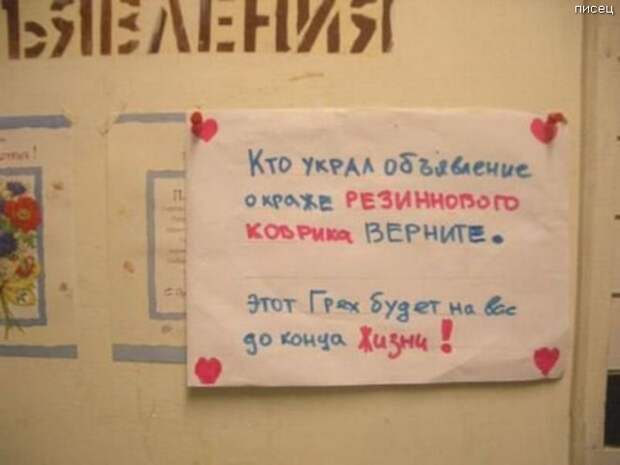 писец
ЪЯВЛЕНИЯ
Кто укрАл объявление
о краже РЕЗИННОВОГО
КОВРИКА ВЕРНИТЕ.
этот Грех будет на вас
до конца Жизни!